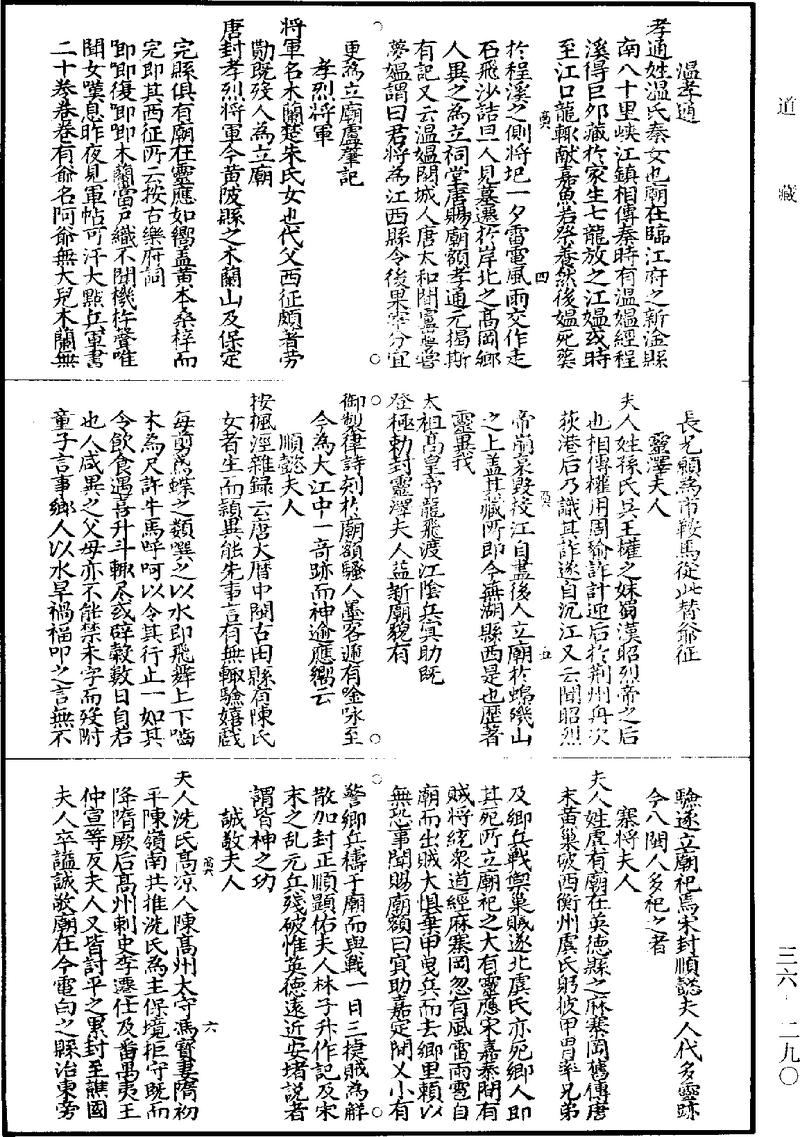 道藏
溫孝通
孝通姓溫氏秦女也廟在臨江府之新淦縣
南八十里峽江鎮相傳秦時有溫媼經程
溪得巨卵藏於家生七龍放之江媼或時
至江口龍輒獻嘉魚若祭養然後媼死葵
高六 四
於程溪之側將圯一夕雷電風雨交作走
石飛沙詰旦人見墓遷於岸北之高岡鄉
人異之為立祠堂唐賜廟額孝通元揭斯
有記又云溫媼閩城人唐太和間盧肇嘗
夢媼謂曰君將為江西縣令後果宰分宜
更為立廟盧肇記
孝烈將軍
將軍名木蘭楚朱氏女也代父西征頗著勞
勩既歿人為立廟
唐封孝烈將軍今黃陂縣之木蘭山及保定
完縣俱有廟在靈應如嚮盖黃本桑梓而
完即其西征所云按古樂府詞
唧唧復唧唧木蘭當戶織不聞機杼聲唯
聞女嘆息昨夜見軍帖可汗大點兵軍書
二十卷卷卷有爺名阿爺無大兒木蘭無
長兄願為市鞍馬從此替爺征
靈澤夫人
夫人姓孫氏吳王權之妹蜀漢昭烈帝之后
也相傳權用周瑜詐計迎后於荊州舟次
荻港后乃識其詐遂自沉江又云聞昭烈
高六 五
帝崩哀毀投江自盡後人立廟於蟂磯山
之上盖其藏所即今蕪湖縣西是也歷著
靈異我
太祖高皇帝龍飛渡江陰兵冥助既
登極勅封靈澤夫人益新廟貌有
御製律詩刻於廟額騷人墨客遞有唫咏至
今為大江中一奇跡而神逾應嚮云
順懿夫人
按楓涇雜録云唐大曆中閩古田縣有陳氏
女者生而穎異能先事言有無輒驗嬉戲
每剪鳶蝶之類噀之以水即飛舞上下嚙
木為尺許牛馬呼呵以令其行止一如其
令飲食遇喜升斗輒尽或辟穀數日自若
也人咸異之父母亦不能禁未字而歿附
童子言事鄉人以水旱禍福叩之言無不
驗遂立廟祀焉宋封順懿夫人代多靈跡
今八閩人多祀之者
寨將夫人
夫人姓虞有廟在英德縣之麻寨岡舊傳唐
末黃巢破西衡州虞氏躬披甲冑率兄弟
及鄉兵戰與巢賊遂北虞氏亦死鄉人即
其死所立廟祀之大有靈應宋嘉泰間有
賊將綂衆道經麻寨岡忽有風雷雨雹自
廟而出賊大惧棄甲曳兵而去鄉里賴以
無恐事聞賜廟額曰冥助嘉定間又小有
警鄉兵禱于廟而與戰一日三捷賊為解
散加封正順顯佑夫人林子升作記及宋
末之乱元兵殘破惟英德遠近安堵説者
謂皆神之功
誠敬夫人
高六 六
夫人洗氏高凉人陳高州太守馮寶妻隋初
平陳嶺南共推洗氏為主保境拒守既而
降隋厥后高州刺史李遷任及番禺夷王
仲宣等反夫人又皆討平之累封至譙國
夫人卒謚誠敬廟在今電白之縣治東旁
三六·二九〇